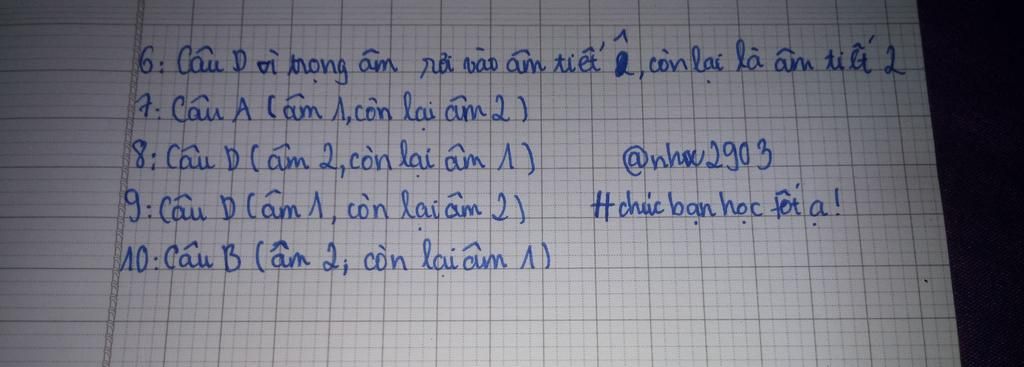 6: Câu D vì trọng âm rơi vào âm tiết, còn lại là âm tiết 2
7: Câu A (âm 1, còn lại âm 2)
8: Câu D (âm 2, còn lại âm 1) @nhu2903
9: Câu D (âm 1, còn lại âm 2) #chúc bạn học tốt ạ!
10: Câu B (âm 2; còn lại âm 1)